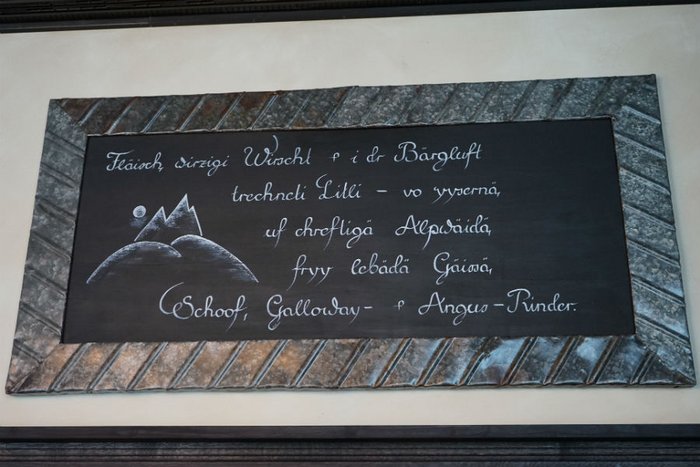 Fläisch, wirzigi Wirscht & i dr Bärgluft
trechneti Litli - vo yysernä,
uf chreftigä Alpwäidä,
fryy lebädä Gäissä,
Schoof, Galloway- & Angus-Rinder.